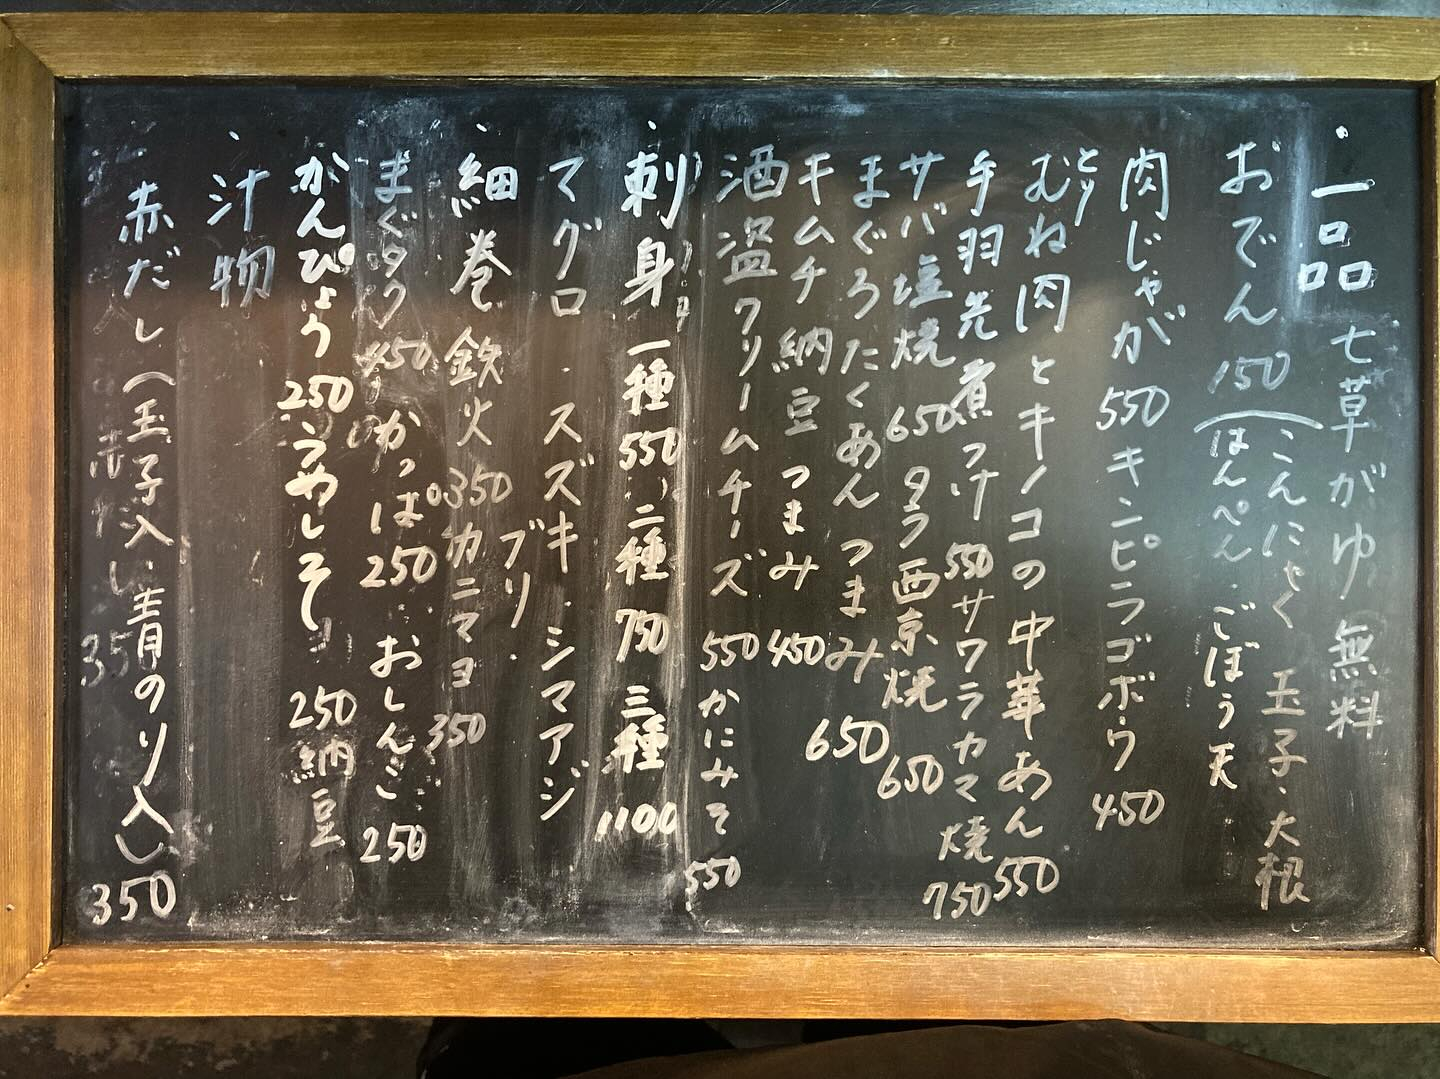 ・一品 七草がゆ 無料
おでん 150 (こんにゃく 玉子・大根
はんぺん・ごぼう天
肉じゃが 550 キンピラゴボウ 450
とりむね肉とキノコの中華あん 550
手羽先煮つけ 550 サワラカマ焼 750
サバ塩焼 650 タラ西京焼 650
まぐろたくあん つまみ 650
キムチ納豆 つまみ 450
酒盗クリームチーズ 550 かにみそ 550
・刺身 一種 550 二種 750 三種 1100
マグロ・スズキ・シマアジ
ブリ
・細巻 鉄火 350 カニマヨ 350
まぐタク 450 かっぱ 250 おしんこ 250
かんぴょう 250 うめしそ 250 納豆
・汁物
赤だし(玉子入・青のり入) 350